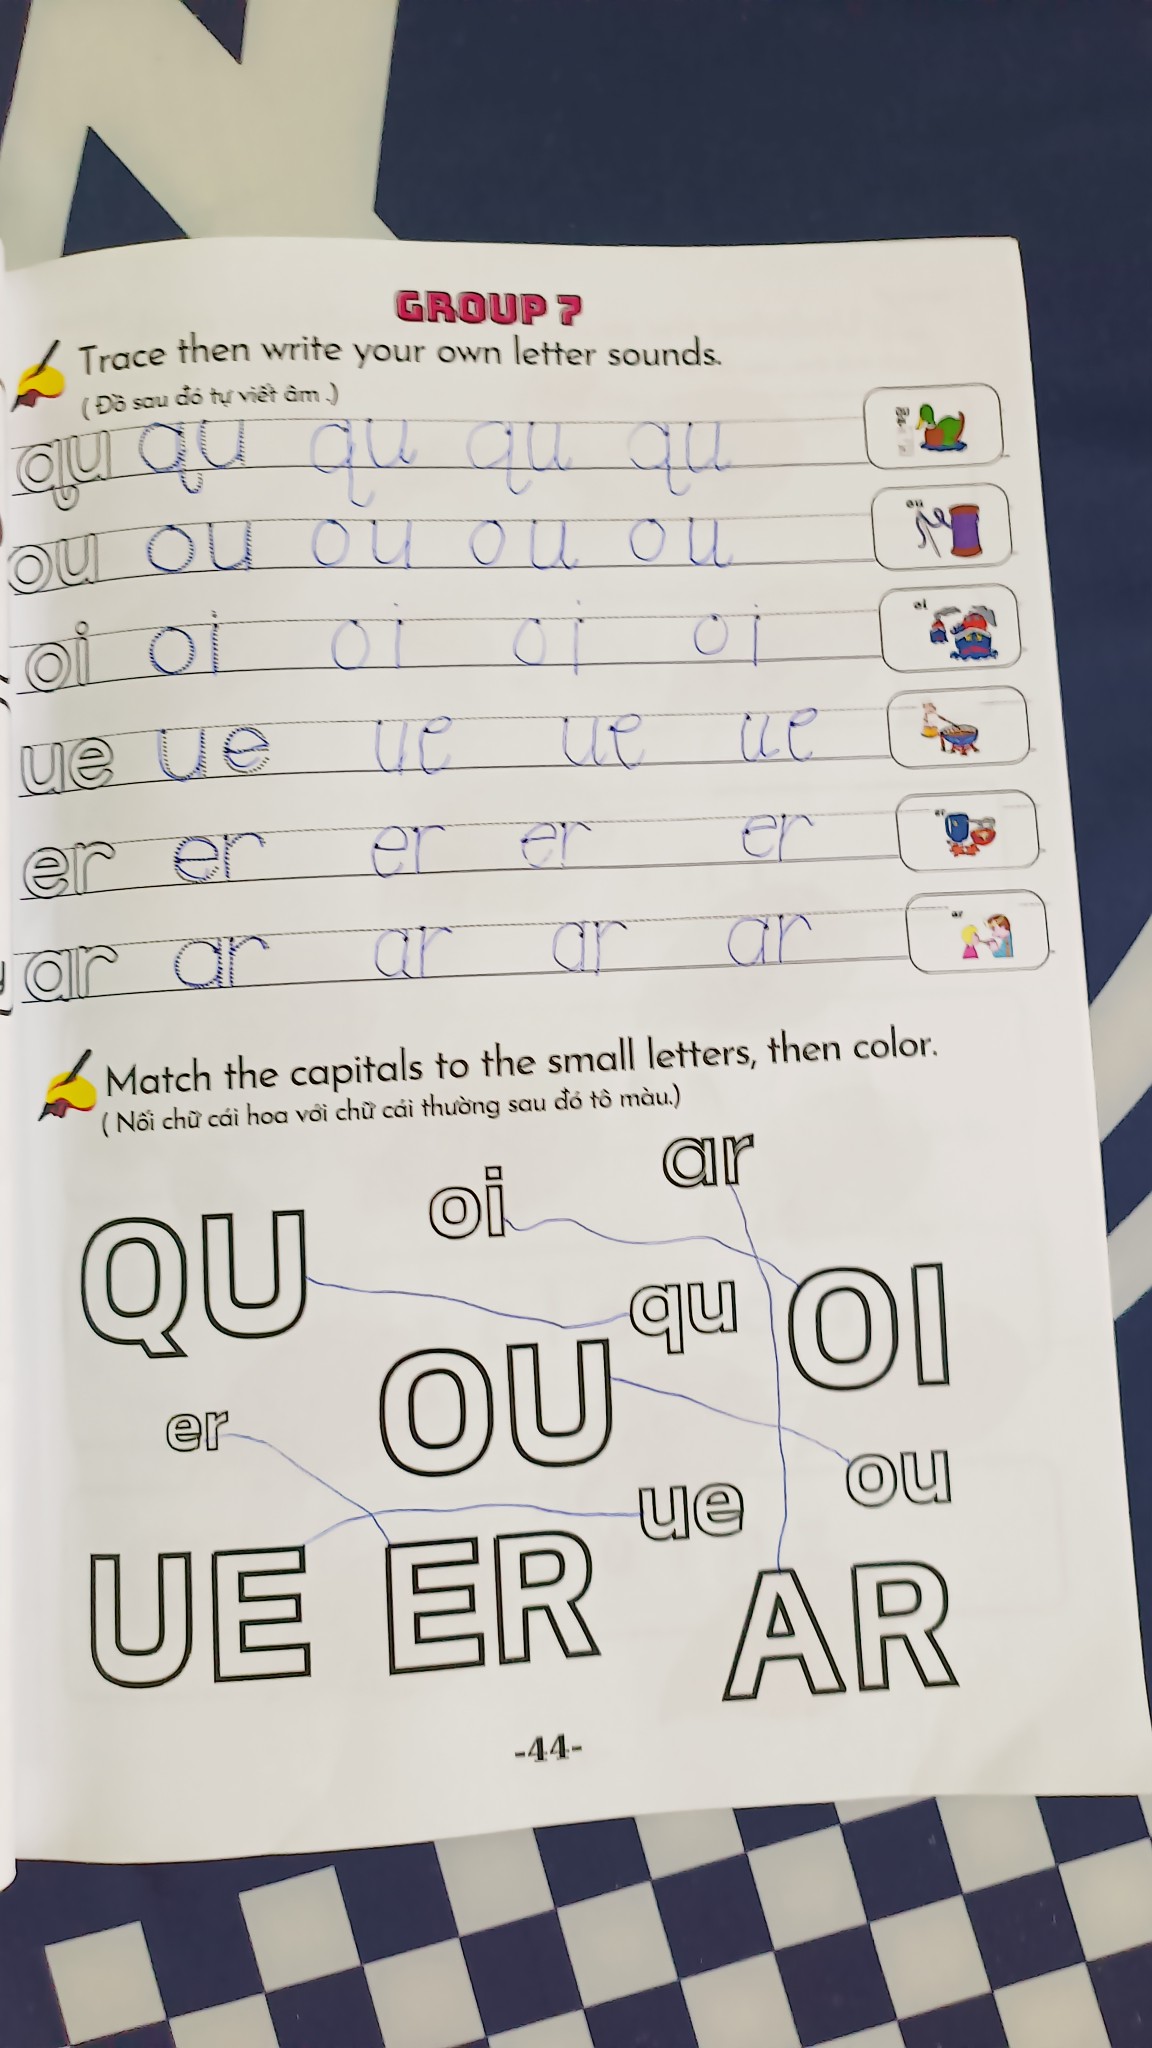 GROUP 7
Trace then write your own letter sounds.
( Đồ sau đó tự viết âm .)
qu qu qu qu qu
ou ou ou ou ou
ou
oi oi oi oi oi
oi
ue ue ue ue ue
er er er er er
er
ar ar ar ar ar
ar
Match the capitals to the small letters, then color.
( Nối chữ cái hoa với chữ cái thường sau đó tô màu.)
ar
oi
QU
qu
OI
OU
er
ou
ue
UE ER AR
-44-